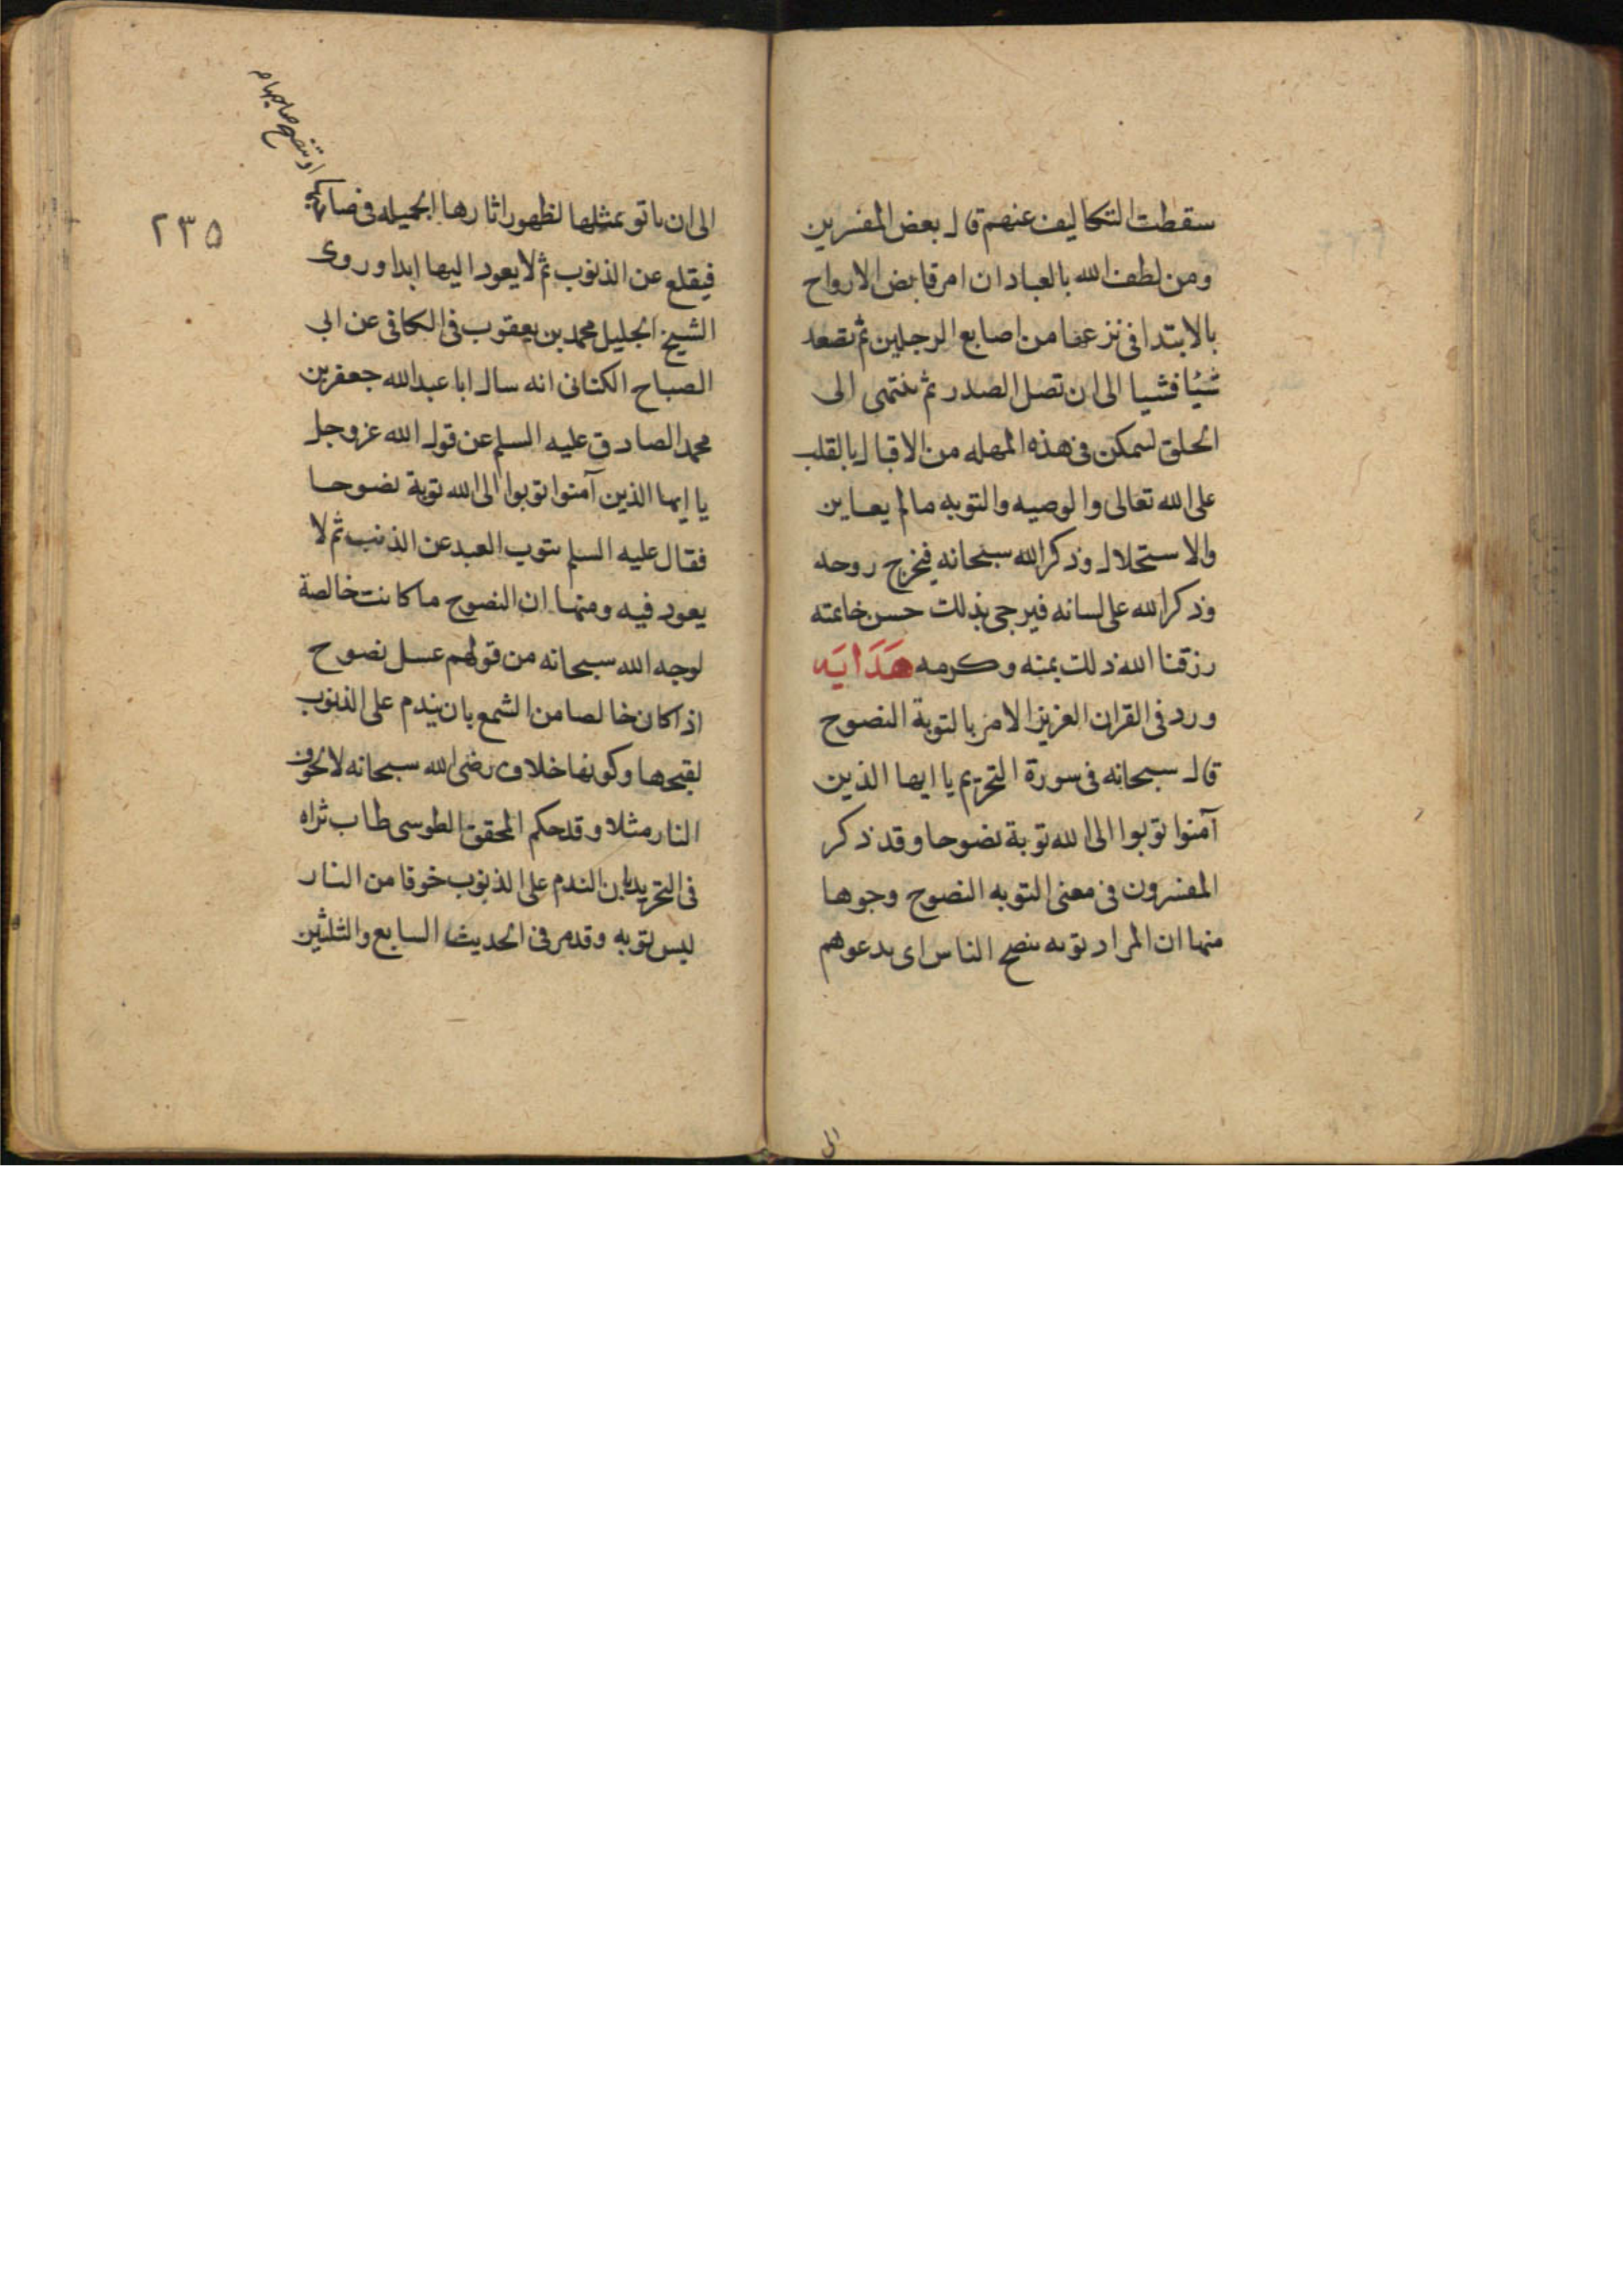 سقطت التكاليف عنهم قال بعض المفسرين
ومن لطف الله بالعباد ان امر قابض الارواح
بالابتدا فى نزعها من اصابع الرجلين ثم تصعد
شيئا فشيا الى ان تصل الصدر ثم تنتهى الى
الحلق ليمكن فى هذه المهله من الاقبال بالقلب
على الله تعالى والوصيه والتوبه ما لم يعاين
والاستحلال وذكر الله سبحانه فيخرج روحه
وذكر الله على لسانه فيرجى بذلك حسن خاتمته
رزقنا الله ذلك بمنه وكرمه هَدَايَه
ورد فى القران العزيز الامر بالتوبة النصوح
قال سبحانه فى سورة التحريم يا ايها الذين
آمنوا توبوا الى الله توبة نصوحا وقد ذكر
المفسرون فى معنى التوبه النصوح وجوها
منها ان المراد توبه تنصح الناس اى يدعوهم
الى
او تنصح صاحبها م
٢٣٥
الى ان ياتو بمثلها لظهور اثارها الجميله فى صاحبها
فيقلع عن الذنوب ثم لا يعود اليها ابدا وروى
الشيخ الجليل محمد بن يعقوب فى الكافى عن ابى
الصباح الكنانى انه سال ابا عبد الله جعفر بن
محمد الصادق عليه السلم عن قول الله عز وجل
يا ايها الذين آمنوا توبوا الى الله توبة نصوحا
فقال عليه السلم يتوب العبد عن الذنب ثم لا
يعود فيه ومنها ان النصوح ما كانت خالصة
لوجه الله سبحانه من قولهم عسل نصوح
اذا كان خالصا من الشمع بان يندم على الذنوب
لقبحها وكونها خلاف رضى الله سبحانه لا لخوف
النار مثلا وقد حكم المحقق الطوسى طاب ثراه
فى التجريد بان الندم على الذنوب خوفا من النار
ليس توبه وقد مر فى الحديث السابع والثلثين